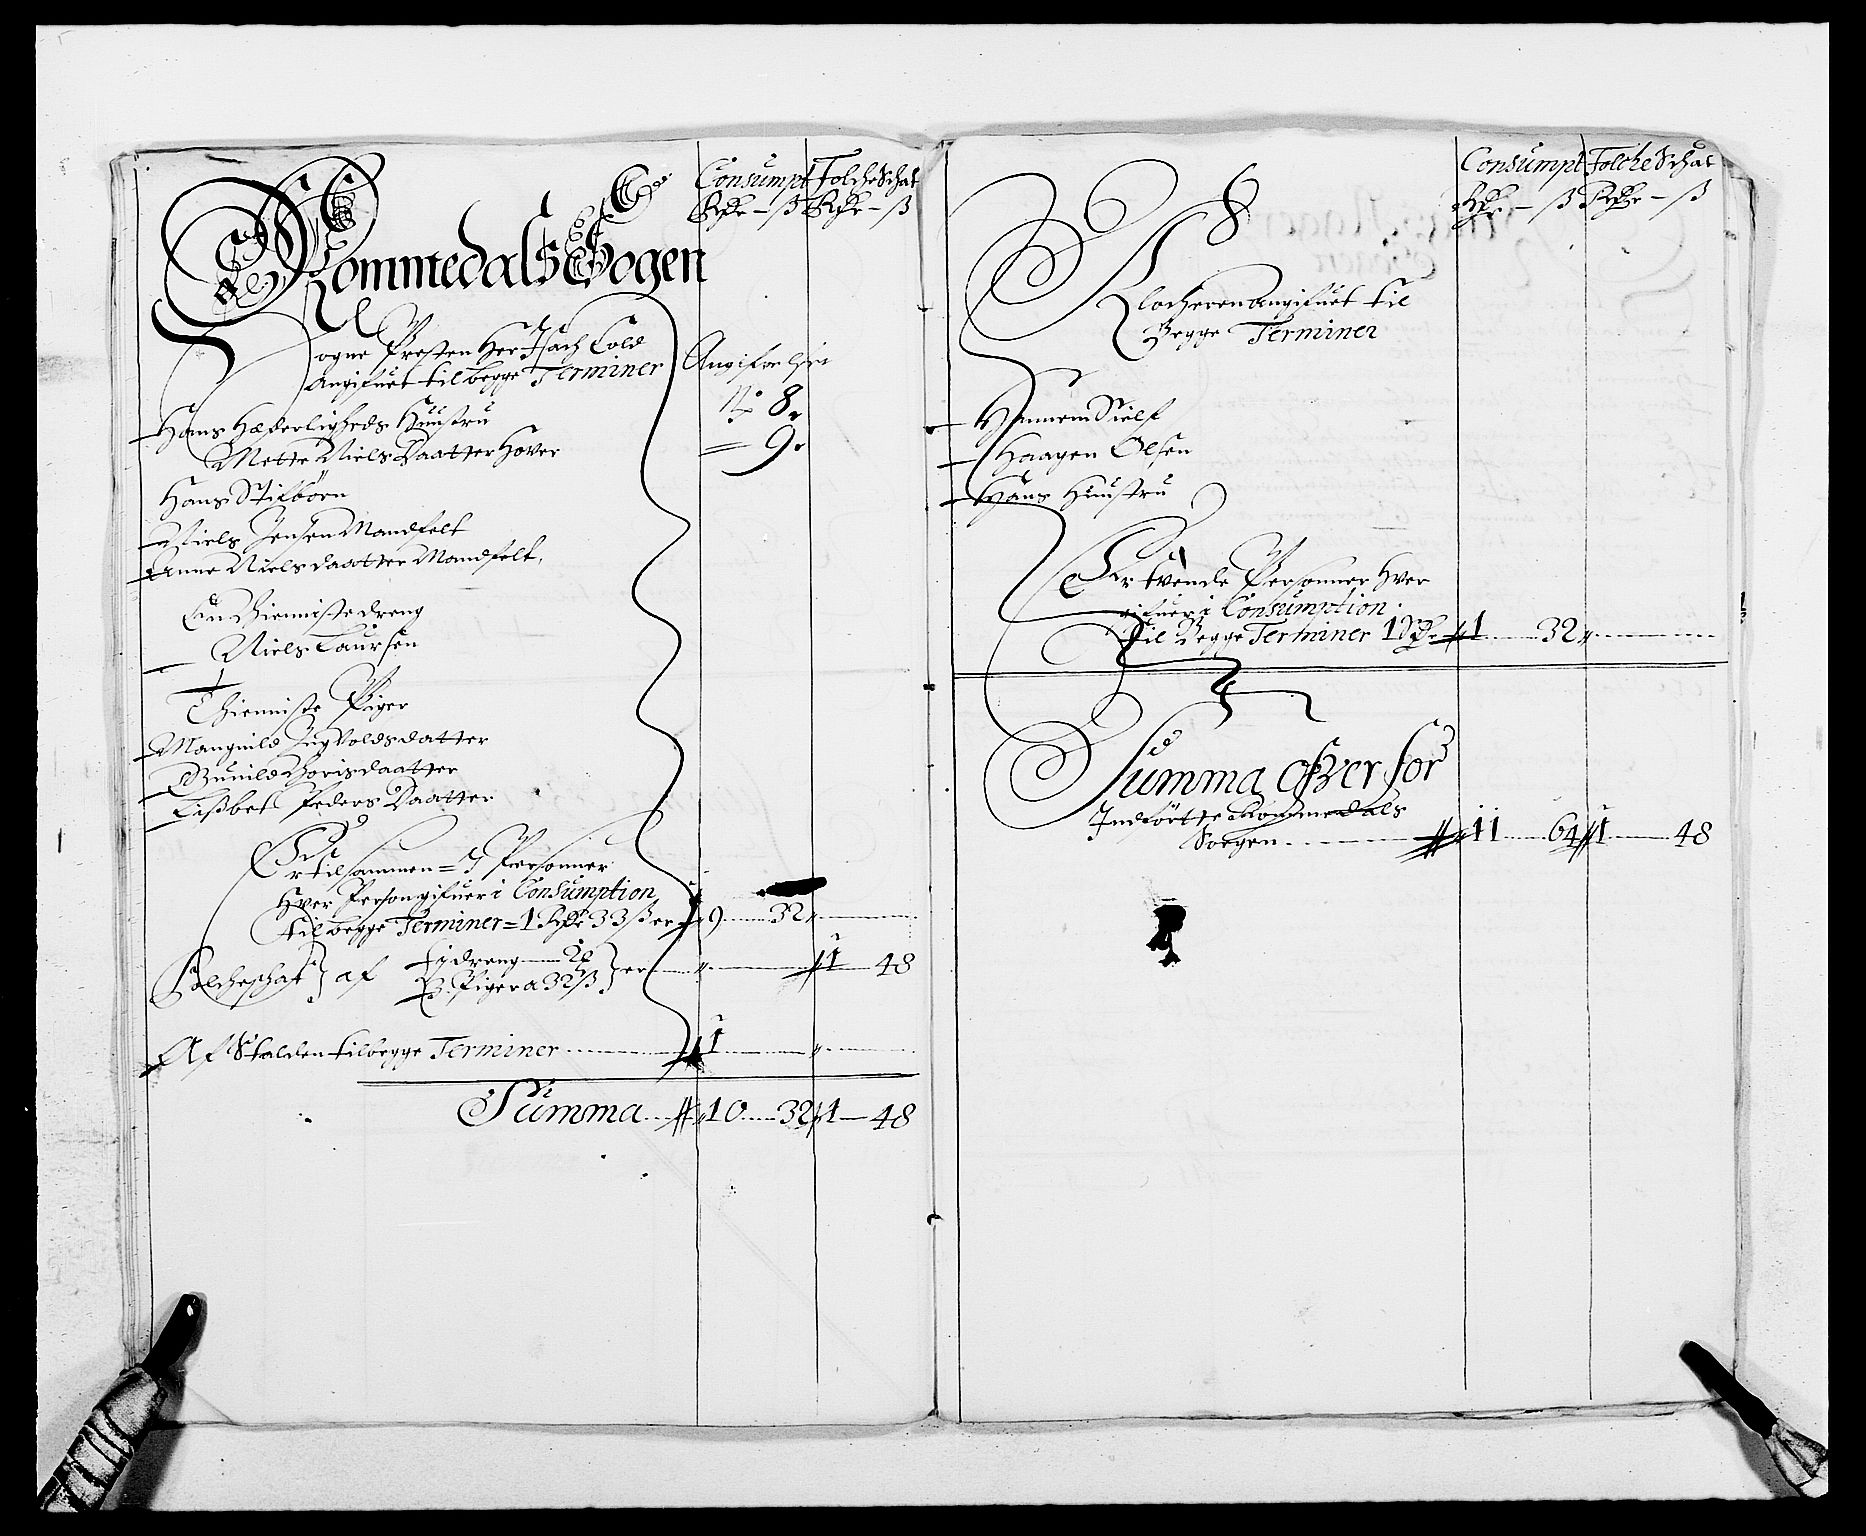 Consumpt Folcheschat
Rdr - ß Rdr - ß
Rommedals Sogen
Sogne Presten Her Isach Cold
Angifuet til begge Terminer Angifvelser
No 8.
Hans Hæderligheds Huustru
= 9.
Mette Niels Daatter Høver
Hans Stifbörn
Niels Jensen Mandfelt
Anne Niels daatter Mandfelt.
Een Thienniste dreng
Niels Laursen
Thienniste Piger
Mangnild Ingvolds datter
Gunild Thoris daatter
Lisbet Peders Daatter
Er tilsammen = 7 Personner
Hver Person gifuer i Consumption
til begge Terminer = 1 Rdr 33 ß er 9 32
Folcheschat af 1 dreng 3 Piger a 32 ß er 1 48
Af Stalden til begge Terminer 1
Summa 10 32 1 48
Consumpt Folcheschat
Rdr - ß Rdr - ß
Klocheren Angifuet til
Begge Terminer
Hannem Sielf
Haagen Olsen
Hans Huustru
Er tvende Personner hver
gifuer i Consumption
til Begge Terminer 1 32
Summa ofver for
Indförtte Rommedals
Soegen 11 64 1 48